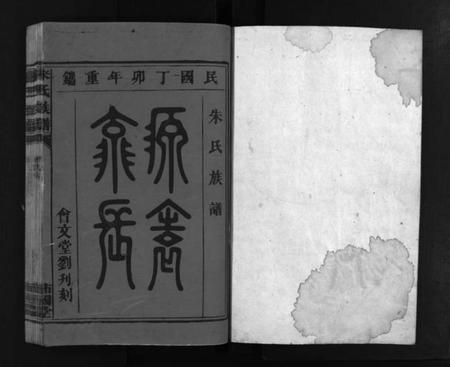 民國丁卯年重鐫
朱氏族譜
源遠
流長
會文堂劉刋刻
朱氏族譜